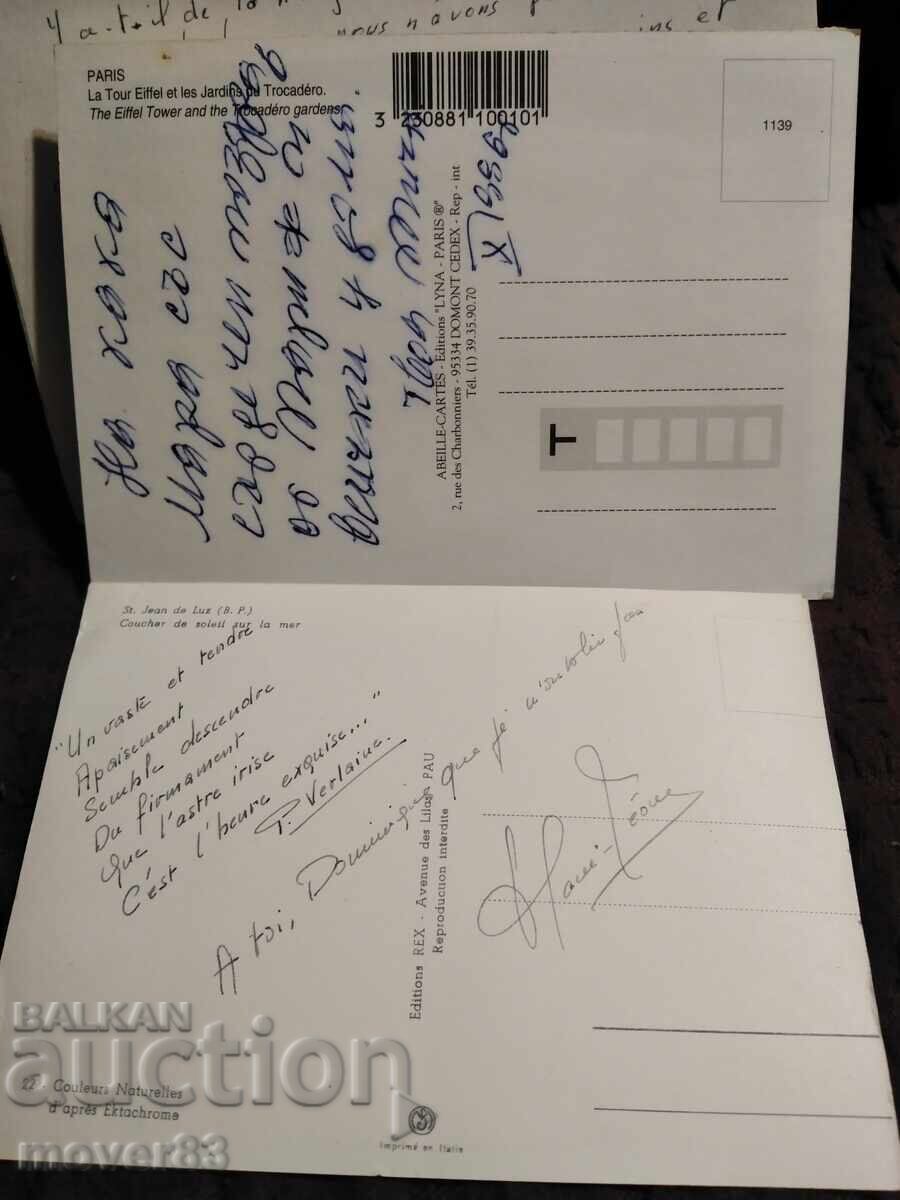 y a-t-il de la
nous n'avons
et
PARIS
La Tour Eiffel et les Jardins du Trocadéro.
The Eiffel Tower and the Trocadéro gardens.
3 230881 100101
1139
На кака
Мара със
сърдечен поздрав
от Париж и
всички
Ваня
XI 1996
ABEILLE-CARTES - Editions "LYNA - PARIS ®"
2, rue des Charbonniers - 95334 DOMONT CEDEX - Rep - int
Tél. (1) 39.35.90.70
T
St. Jean de Luz (B. P.)
Coucher de soleil sur la mer
"Un vaste et tendre
Apaisement
Semble descendre
Du firmament
Que l'astre irise
C'est l'heure exquise..."
P. Verlaine.
A toi, Dominique que je n'oublie pas
Marie-Léone
Editions REX - Avenue des Lilas, PAU
Reproduction interdite
22 - Couleurs Naturelles
d'après Ektachrome
Imprimé en Italie
BALKAN
auction
mover83